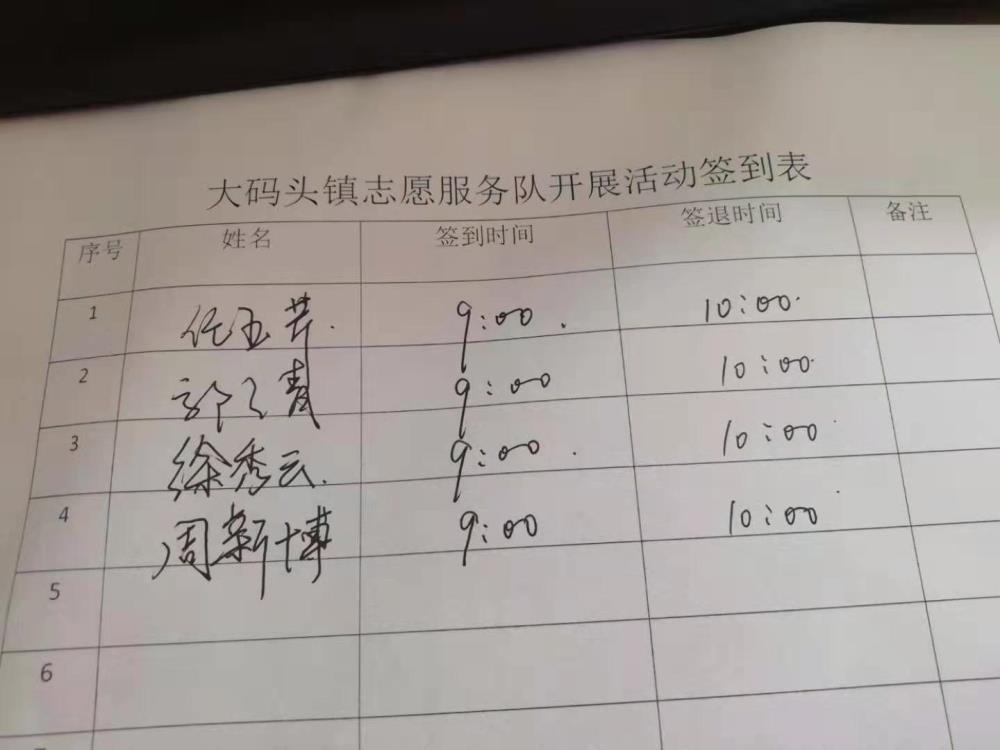 大码头镇志愿服务队开展活动签到表
序号 姓名 签到时间 签退时间 备注
1 任玉芹 9:00 10:00
2 郭 青 9:00 10:00
3 徐秀云 9:00 10:00
4 周新博 9:00 10:00
5
6